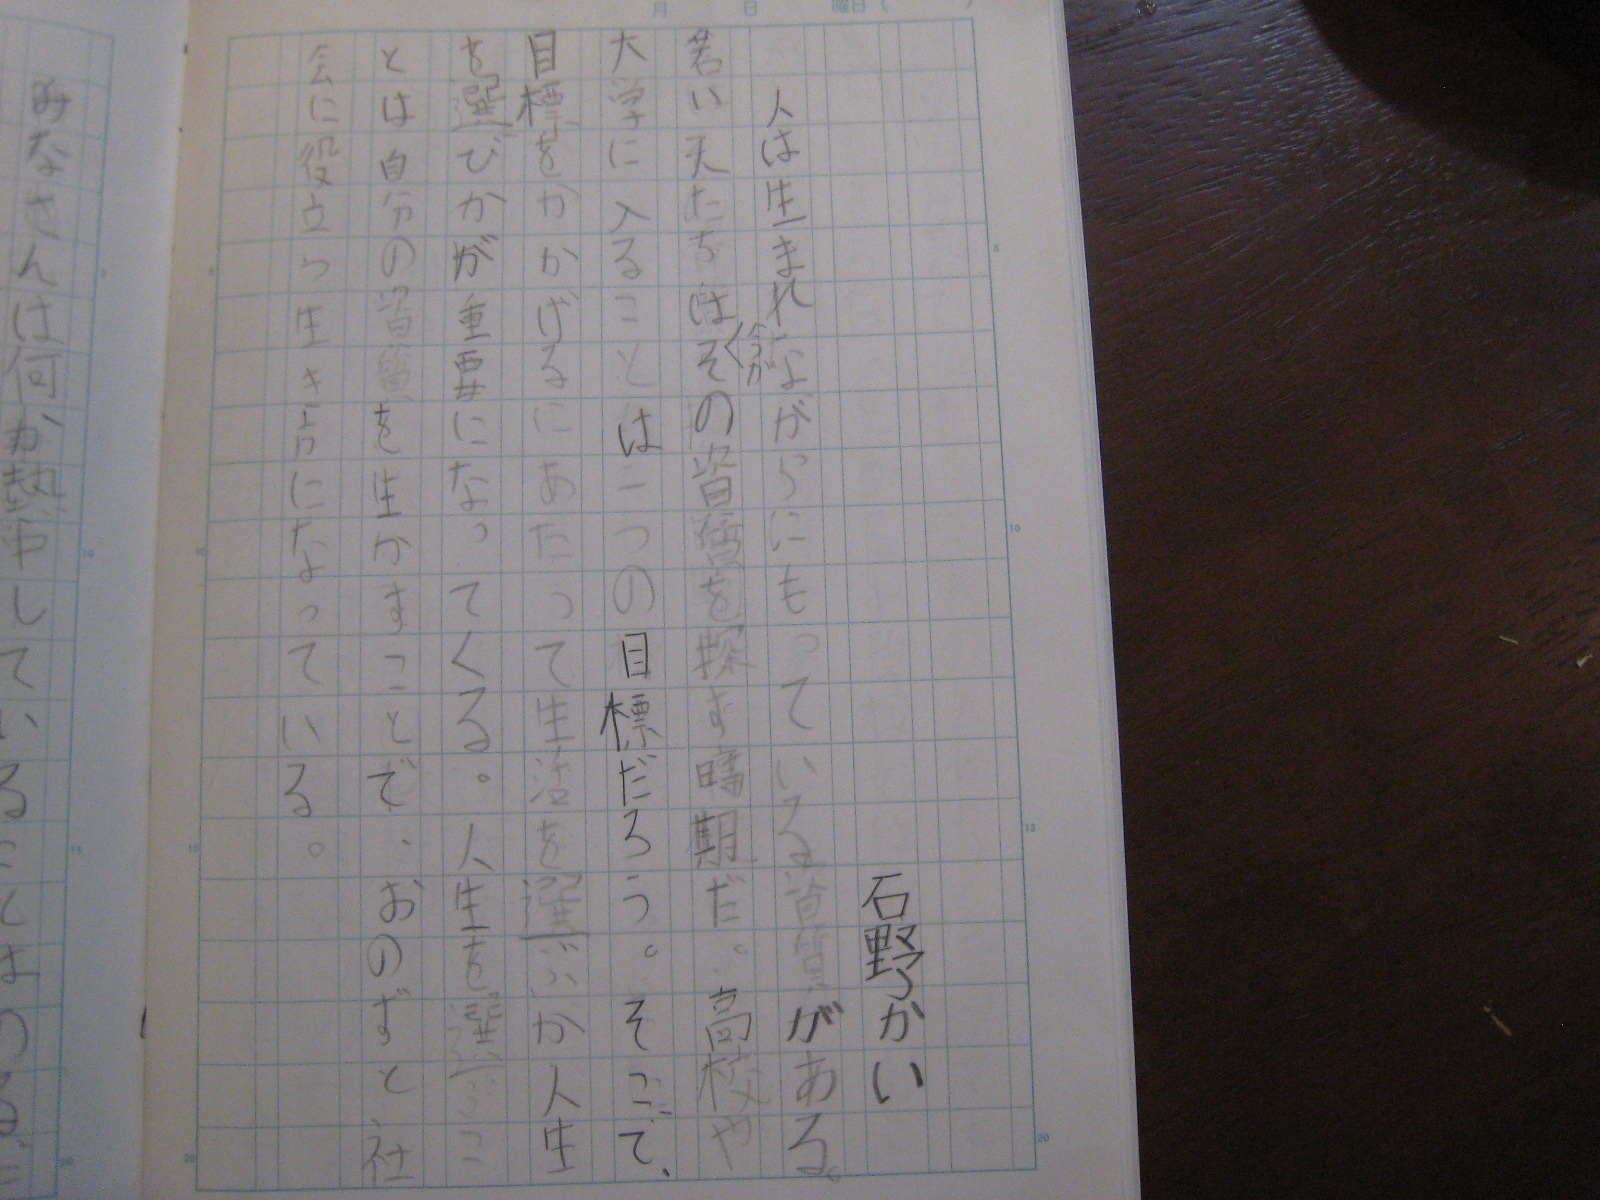 月 日 曜日（ ）
石野かい
人は生まれながらにもっている資質がある。
若い天たちは今がその資質を探す時期だ。高校や
大学に入ることは一つの目標だろう。そこで、
目標をかかげるにあたって生活を選ぶか人生
を選びかが重要になってくる。人生を選ぶこ
とは自分の資質を生かすことで、おのずと社
会に役立つ生き方になっている。
みなさんは何か熱中していることはあるだ